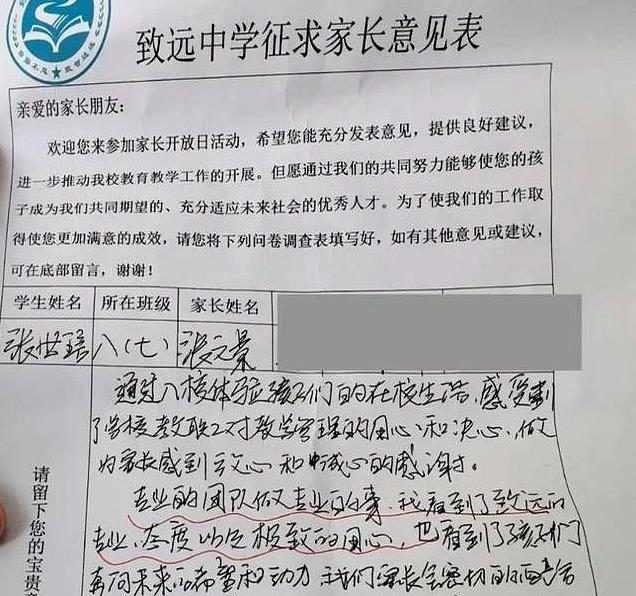 致远中学征求家长意见表
亲爱的家长朋友：
欢迎您来参加家长开放日活动，希望您能充分发表意见，提供良好建议，
进一步推动我校教育教学工作的开展。但愿通过我们的共同努力能够使您的孩
子成为我们共同期望的、充分适应未来社会的优秀人才。为了使我们的工作取
得使您更加满意的成效，请您将下列问卷调查表填写好，如有其他意见或建议，
可在底部留言，谢谢！
学生姓名 所在班级 家长姓名
张世 八（七） 张文景
通过入校体验孩子们的在校生活，感受到
了学校教职工对教学管理的用心和决心，做
为家长感到 心和 心的感谢。
专业的团队做专业的事，我看到了致远的
专业、态度以及极致的用心，也看到了孩子们
奔向未来的希望和动力 我们家长会密切的配合
请留下您的宝贵意